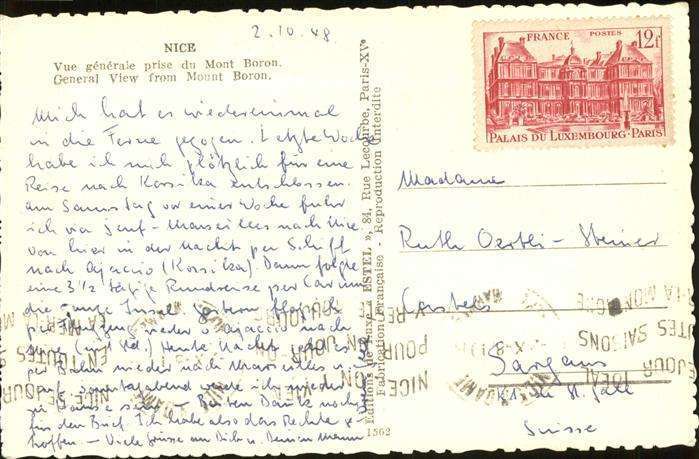 2.10.48
NICE
Vue générale prise du Mont Boron.
General View from Mount Boron.
Mich hat es wiedereinmal
in die Ferne gezogen. Letzte Woche
habe ich mich plötzlich für eine
Reise nach Korsika entschlossen.
am Samstag vor einer Woche fuhr
ich via Genf-Marseilles nach Nice
von hier in der Nacht per Schiff
nach Ajaccio (Korsika). Dann folgte
eine 3½ tägige Rundreise per Car um
die ganze Insel. Gestern flog ich
per Flugzeug wieder v. Ajaccio nach
Heute Nacht geht es
per Bahn wieder nach Marseilles
Sonntagabend werde ich wieder
zu Hause sein — Besten Dank noch
für den Brief. Ich habe also das Rechte ge-
troffen — Viele Grüsse an Dich u. Deinen Mann
Editions de Luxe « ESTEL », 84, Rue Lecourbe, Paris-XVe
Fabrication Française - Reproduction Interdite
1562
FRANCE POSTES 12f
PALAIS DU LUXEMBOURG-PARIS
Madame
Ruth Oertli-Steiner
Castels
Sargans
Kt. St. Gall
Suisse
NICE POUR
EN TOUTES SAISONS
SEJOUR IDEAL